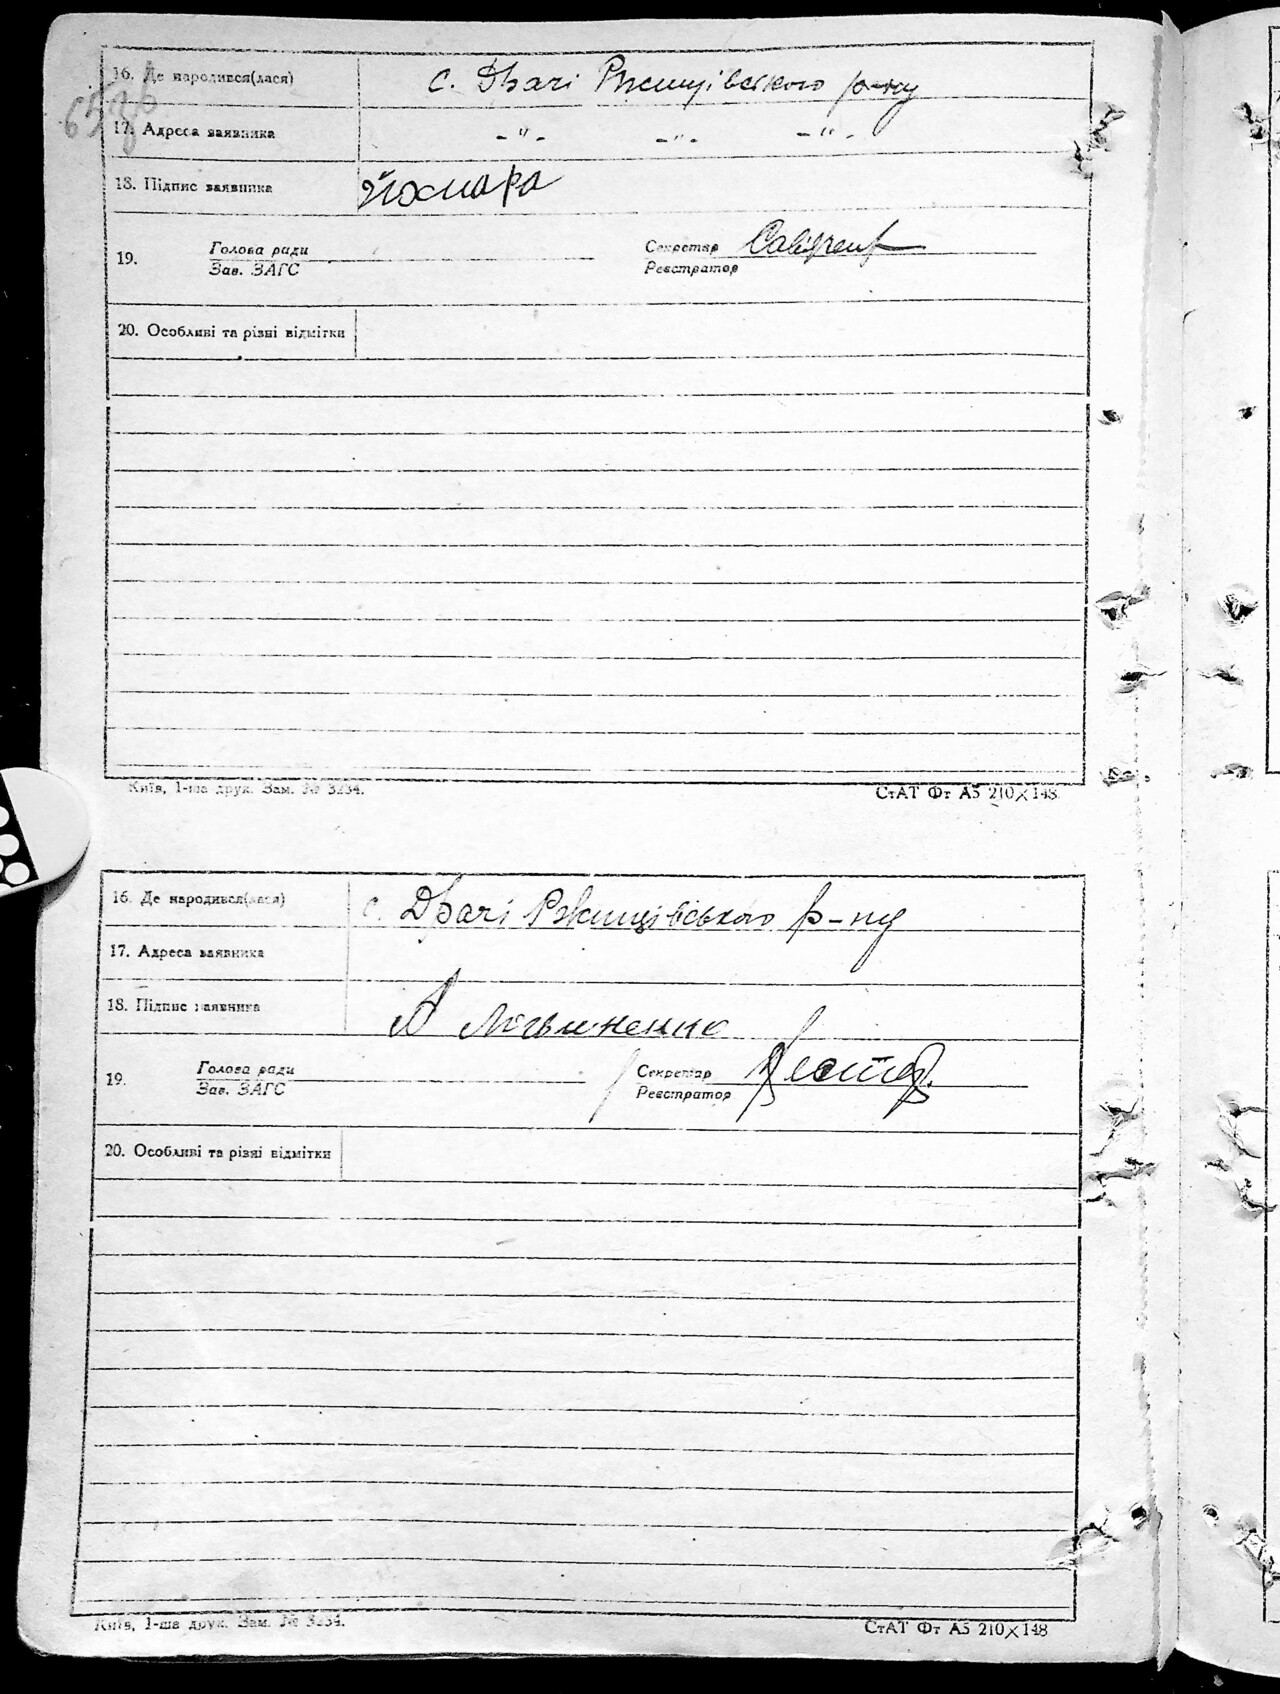 16. Де народився(лася) с. Драчі Ржищівського р-ну
17. Адреса заявника -"- -"- -"-
18. Підпис заявника
19. Голова ради Секретар
Зав. ЗАГС Реєстратор
20. Особливі та різні відмітки
Київ, 1-ша друк. Зам. № 3234. СтАТ Фт А5 210×148
16. Де народився(лася) с. Драчі Ржищівського р-ну
17. Адреса заявника
18. Підпис заявника
19. Голова ради Секретар
Зав. ЗАГС Реєстратор
20. Особливі та різні відмітки
Київ, 1-ша друк. Зам. № 3234. СтАТ Фт А5 210×148